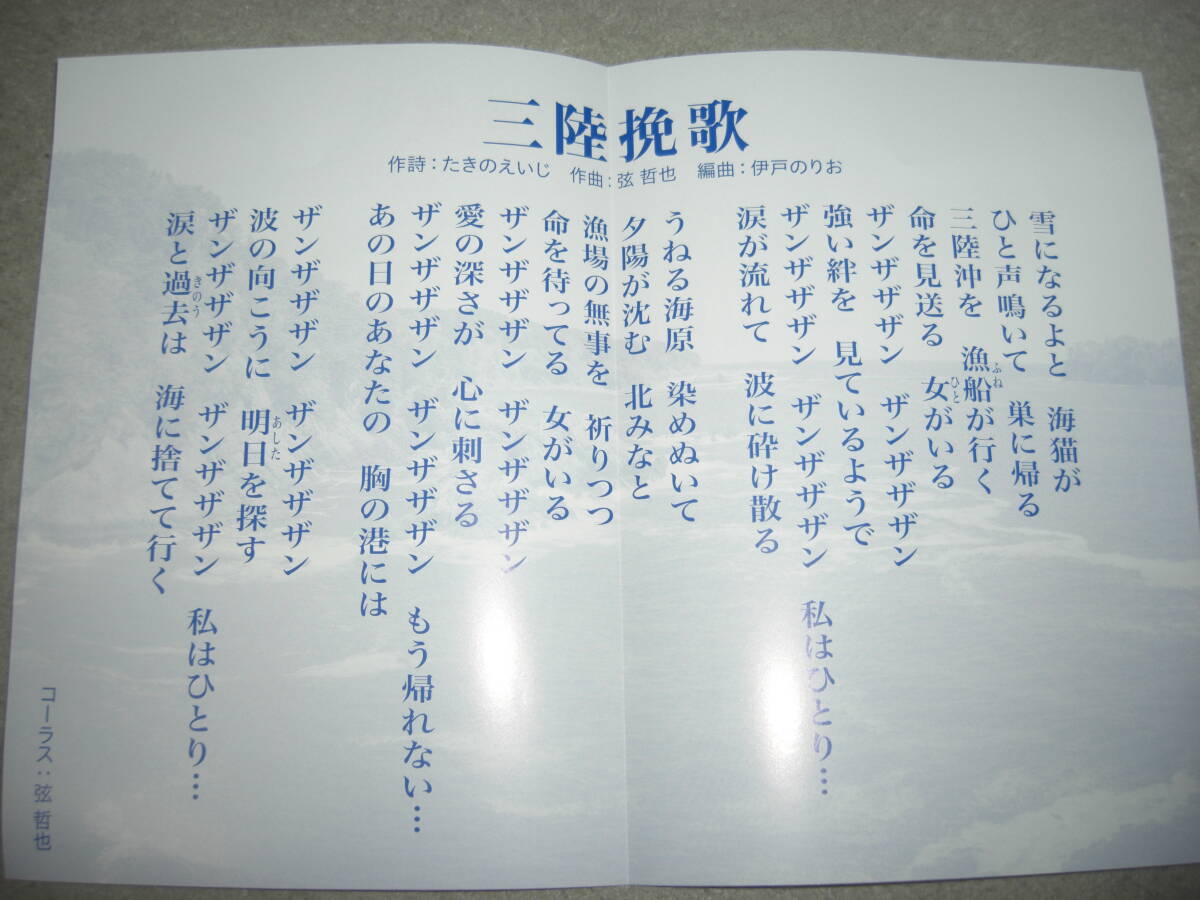 三陸挽歌
作詩:たきのえいじ 作曲:弦 哲也 編曲:伊戸のりお
雪になるよと 海猫が
ひと声鳴いて 巣に帰る
三陸沖を 漁船が行く
ふね
命を見送る 女がいる
ひと
ザンザザザン ザンザザザン
強い絆を 見ているようで
ザンザザザン ザンザザザン 私はひとり…
涙が流れて 波に砕け散る
うねる海原 染めぬいて
夕陽が沈む 北みなと
漁場の無事を 祈りつつ
命を待ってる 女がいる
ザンザザザン ザンザザザン
愛の深さが 心に刺さる
ザンザザザン ザンザザザン もう帰れない…
あの日のあなたの 胸の港には
ザンザザザン ザンザザザン
波の向こうに 明日を探す
あした
ザンザザザン ザンザザザン 私はひとり…
涙と過去は 海に捨てて行く
きのう
コーラス:弦 哲也